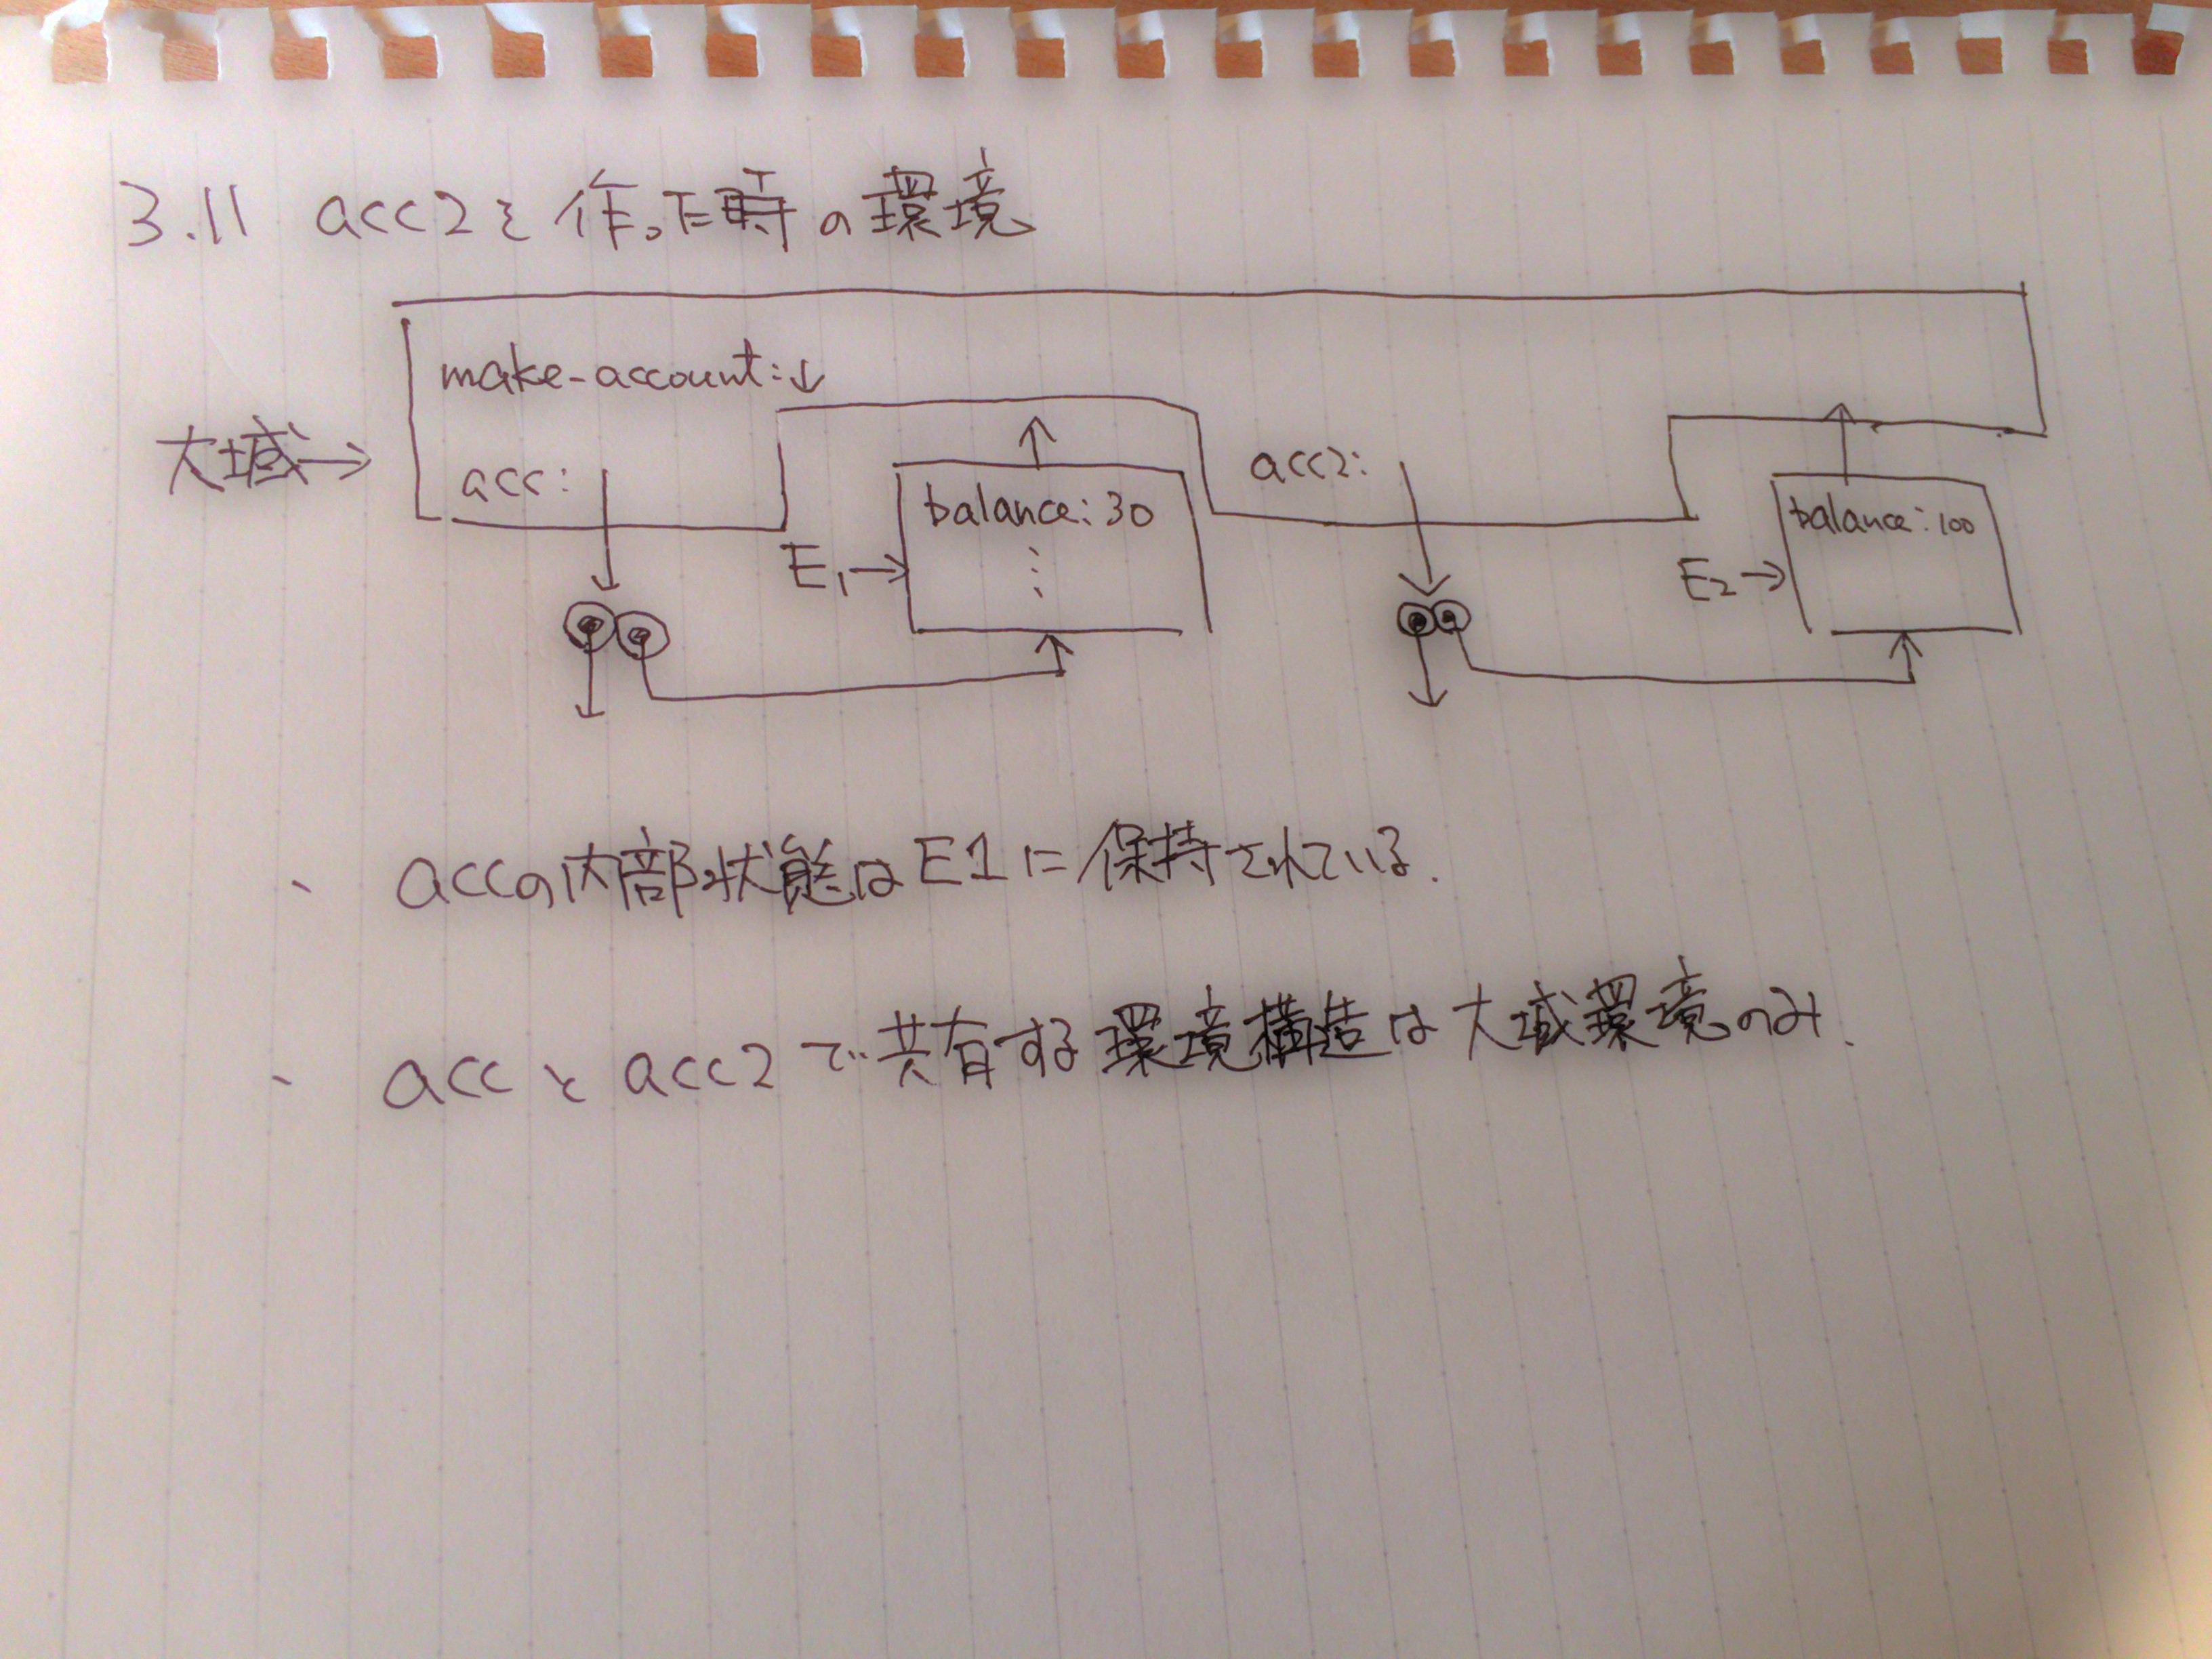 3.11 acc2を作った時の環境
make-account:↓
大域→
acc:
balance: 30
acc2:
balance: 100
E1→
⋮
E2→
、 accの内部状態はE1に保持されている.
、 accとacc2で共有する環境構造は大域環境のみ.